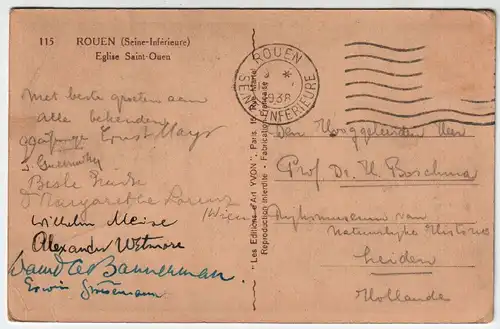 115 ROUEN (Seine-Inférieure)
Eglise Saint-Ouen
ROUEN
1938
SEINE INFÉRIEURE
Met beste groeten aan
alle bekenden
Ernst Mayr
Beste Grüße
Margarethe Lorenz
(Wien)
Wilhelm Meise
Alexander Wetmore
David A Bannerman.
Erwin Stresemann
"Les Editions d'Art YVON", Paris. Rue
Reproduction interdite - Fabrication Française
Den Hooggeleerden Heer
Prof. Dr. H. Boschma
Rijksmuseum van
Natuurlijke Historie
Leiden
Hollande